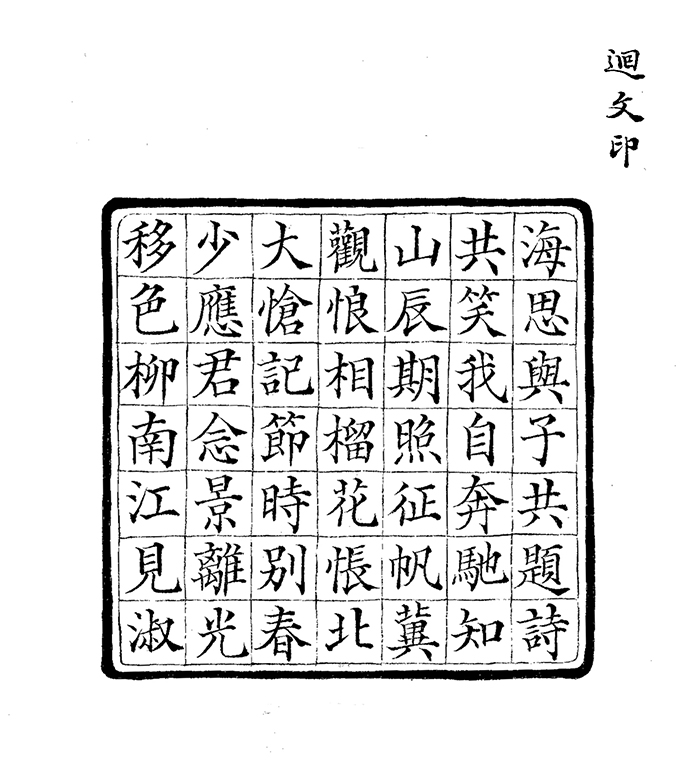 迴文印
海思與子共題詩
共笑我自奔馳知
山辰期照征帆冀
觀悢相榴花悵北
大愴記節時別春
少應君念景離光
移色柳南江見淑